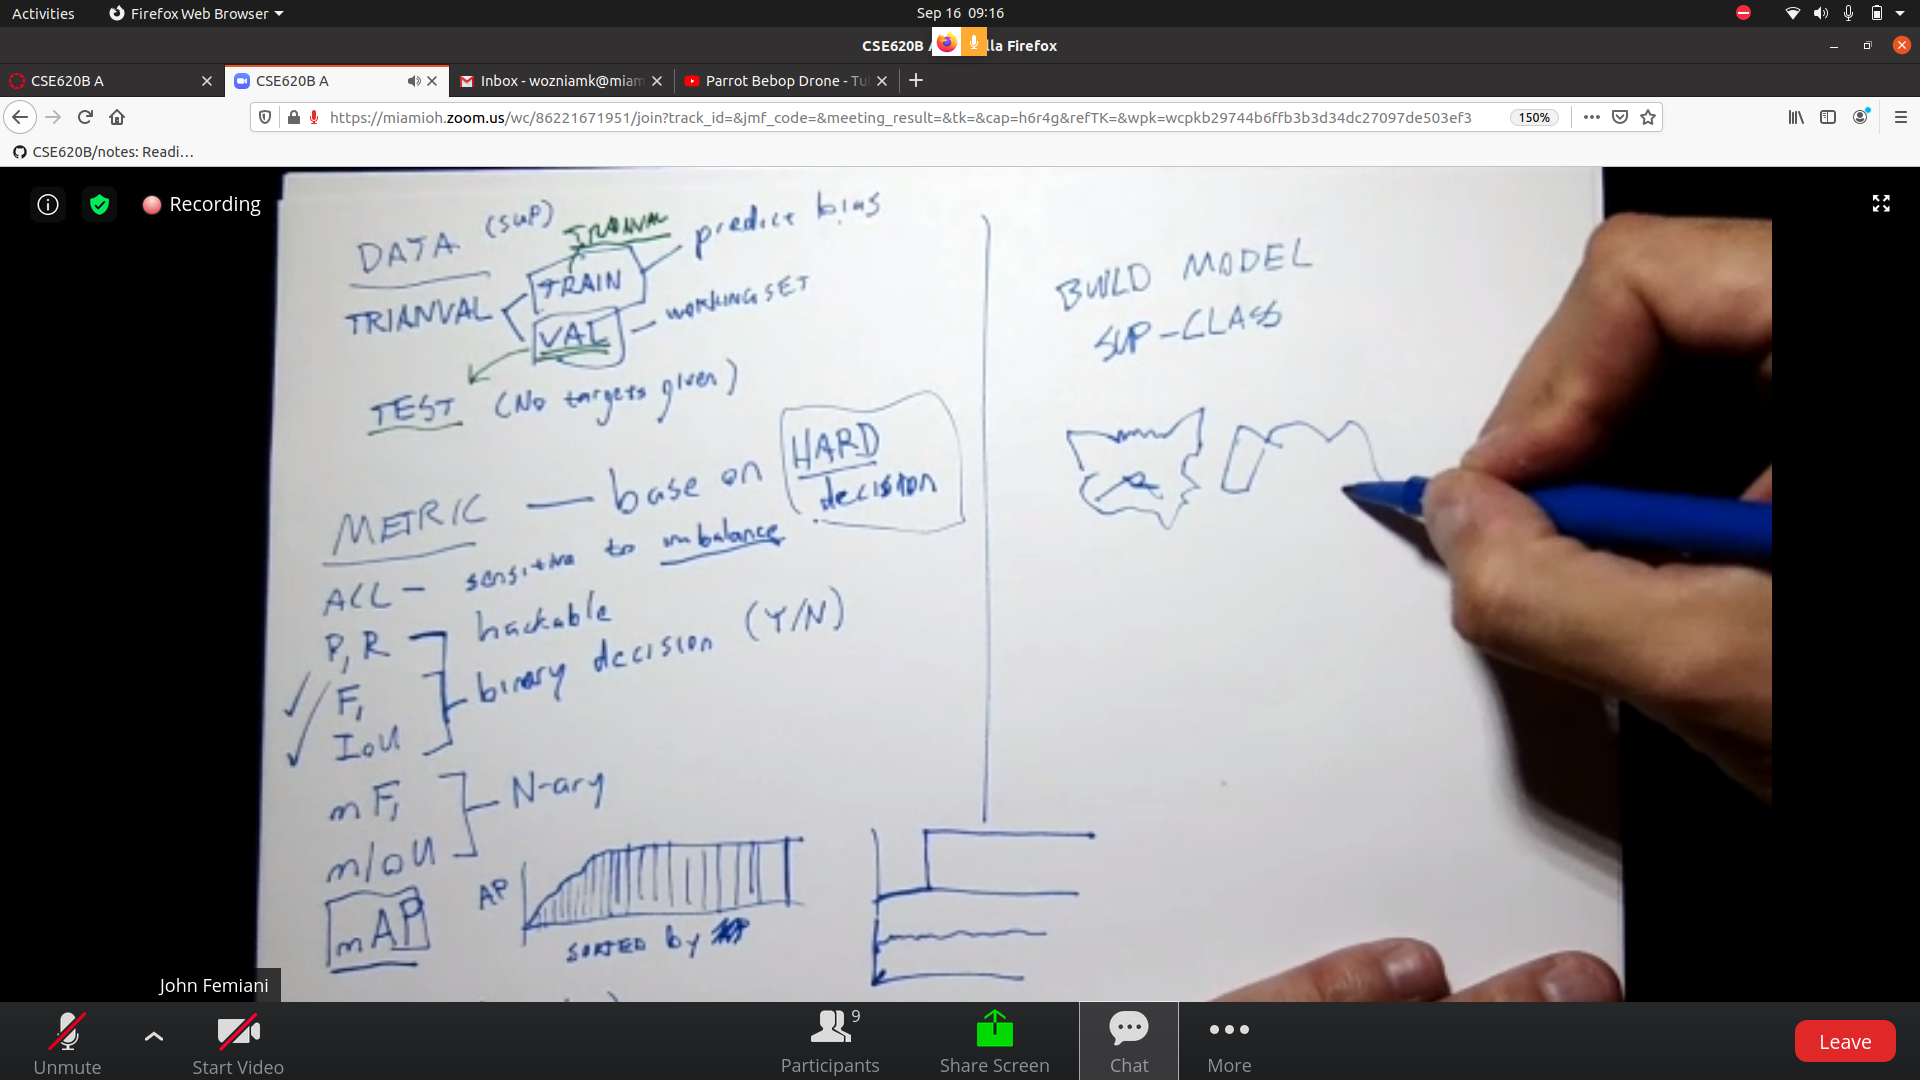 Activities
Firefox Web Browser
Sep 16 09:16
CSE620B A
lla Firefox
CSE620B A
CSE620B A
Inbox - wozniamk@miam
Parrot Bebop Drone - Tu
https://miamioh.zoom.us/wc/86221671951/join?track_id=&jmf_code=&meeting_result=&tk=&cap=h6r4g&refTK=&wpk=wcpkb29744b6ffb3b3d34dc27097de503ef3
150%
CSE620B/notes: Readi…
Recording
DATA (SUP)
TRAINVAL
predict bias
TRIANVAL
TRAIN
VAL
WORKING SET
TEST (No targets given)
METRIC — base on HARD decision
ACC - sensitive to imbalance
P, R
hackable
F,
binary decision (Y/N)
IoU
mF,
N-ary
mIoU
mAP
AP
SORTED by
BUILD MODEL
SUP-CLASS
John Femiani
Unmute
Start Video
Participants
9
Share Screen
Chat
More
Leave